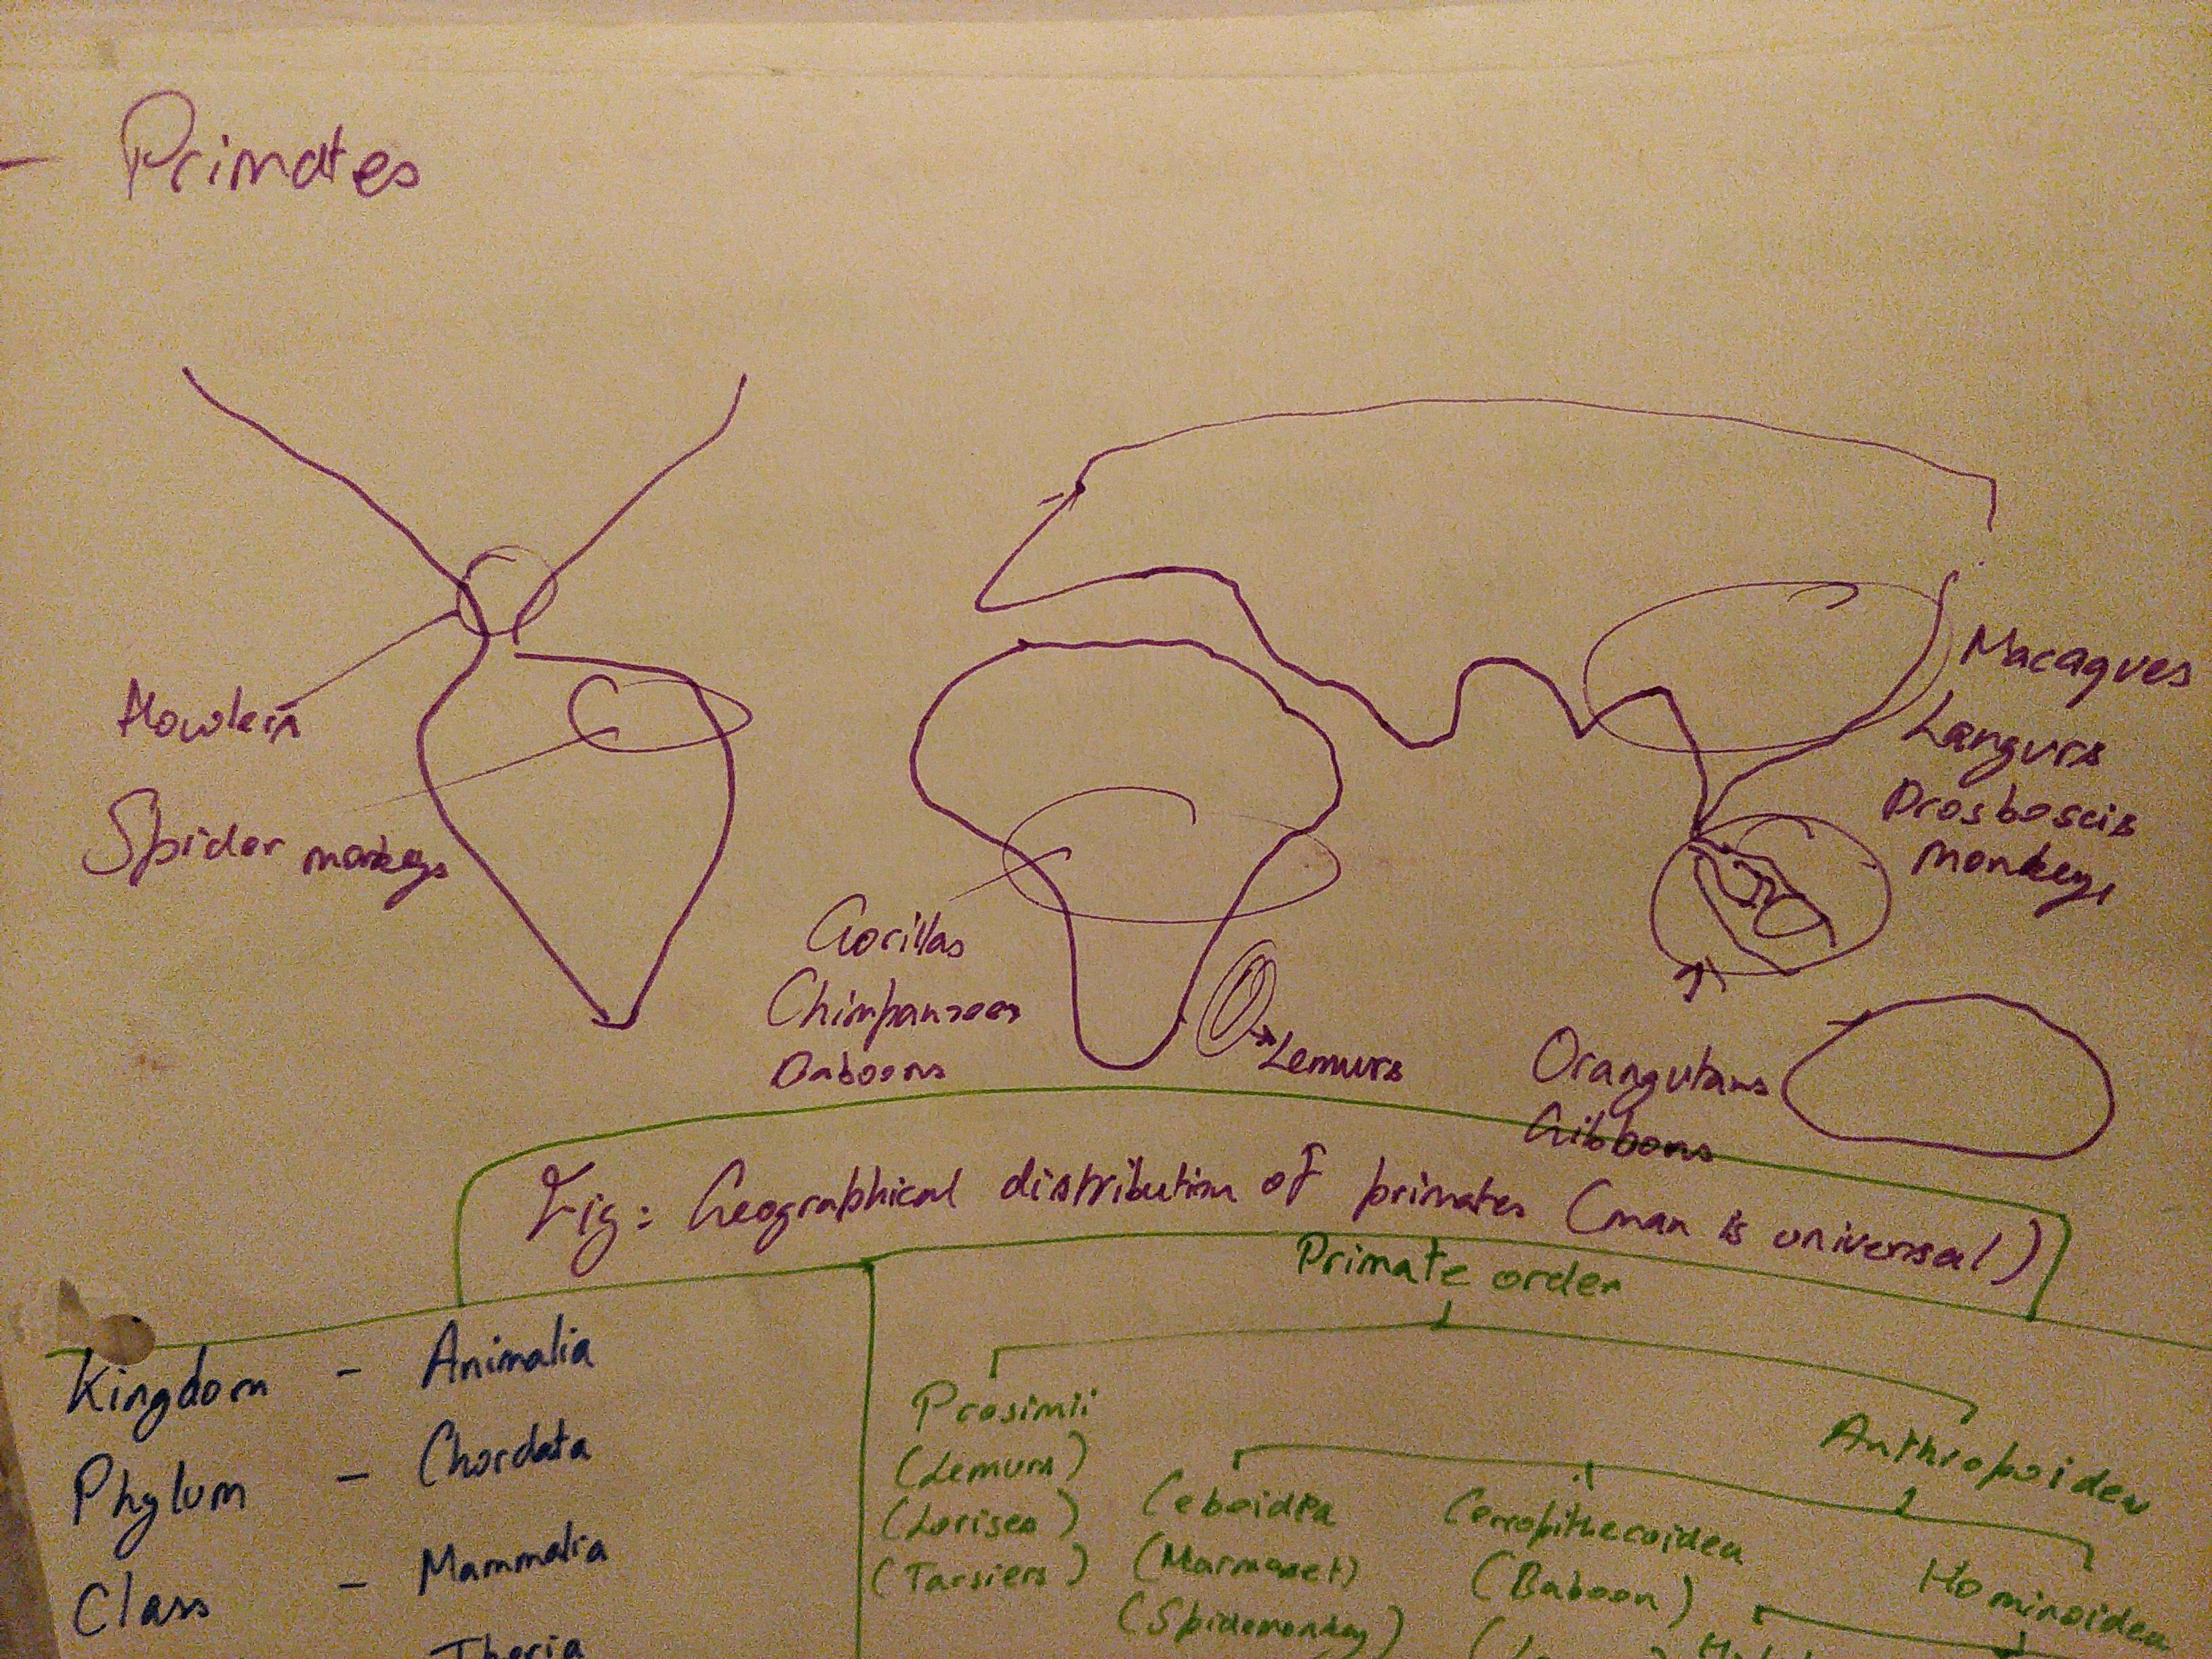 - Primates
Howlers
Spider monkeys
Macaques
Langurs
Prosboscis
monkeys
Gorillas
Chimpanzees
Baboons
Lemurs
Orangutans
Gibbons
Fig: Geographical distribution of primates (man is universal)
Kingdom - Animalia
Phylum - Chordata
Class - Mammalia
Theria
Primate order
Prosimii
(Lemurs)
(Lorises)
(Tarsiers)
Anthropoidea
Ceboidea
(Marmoset)
(Spidemonkey)
Cercopithecoidea
(Baboon)
Hominoidea